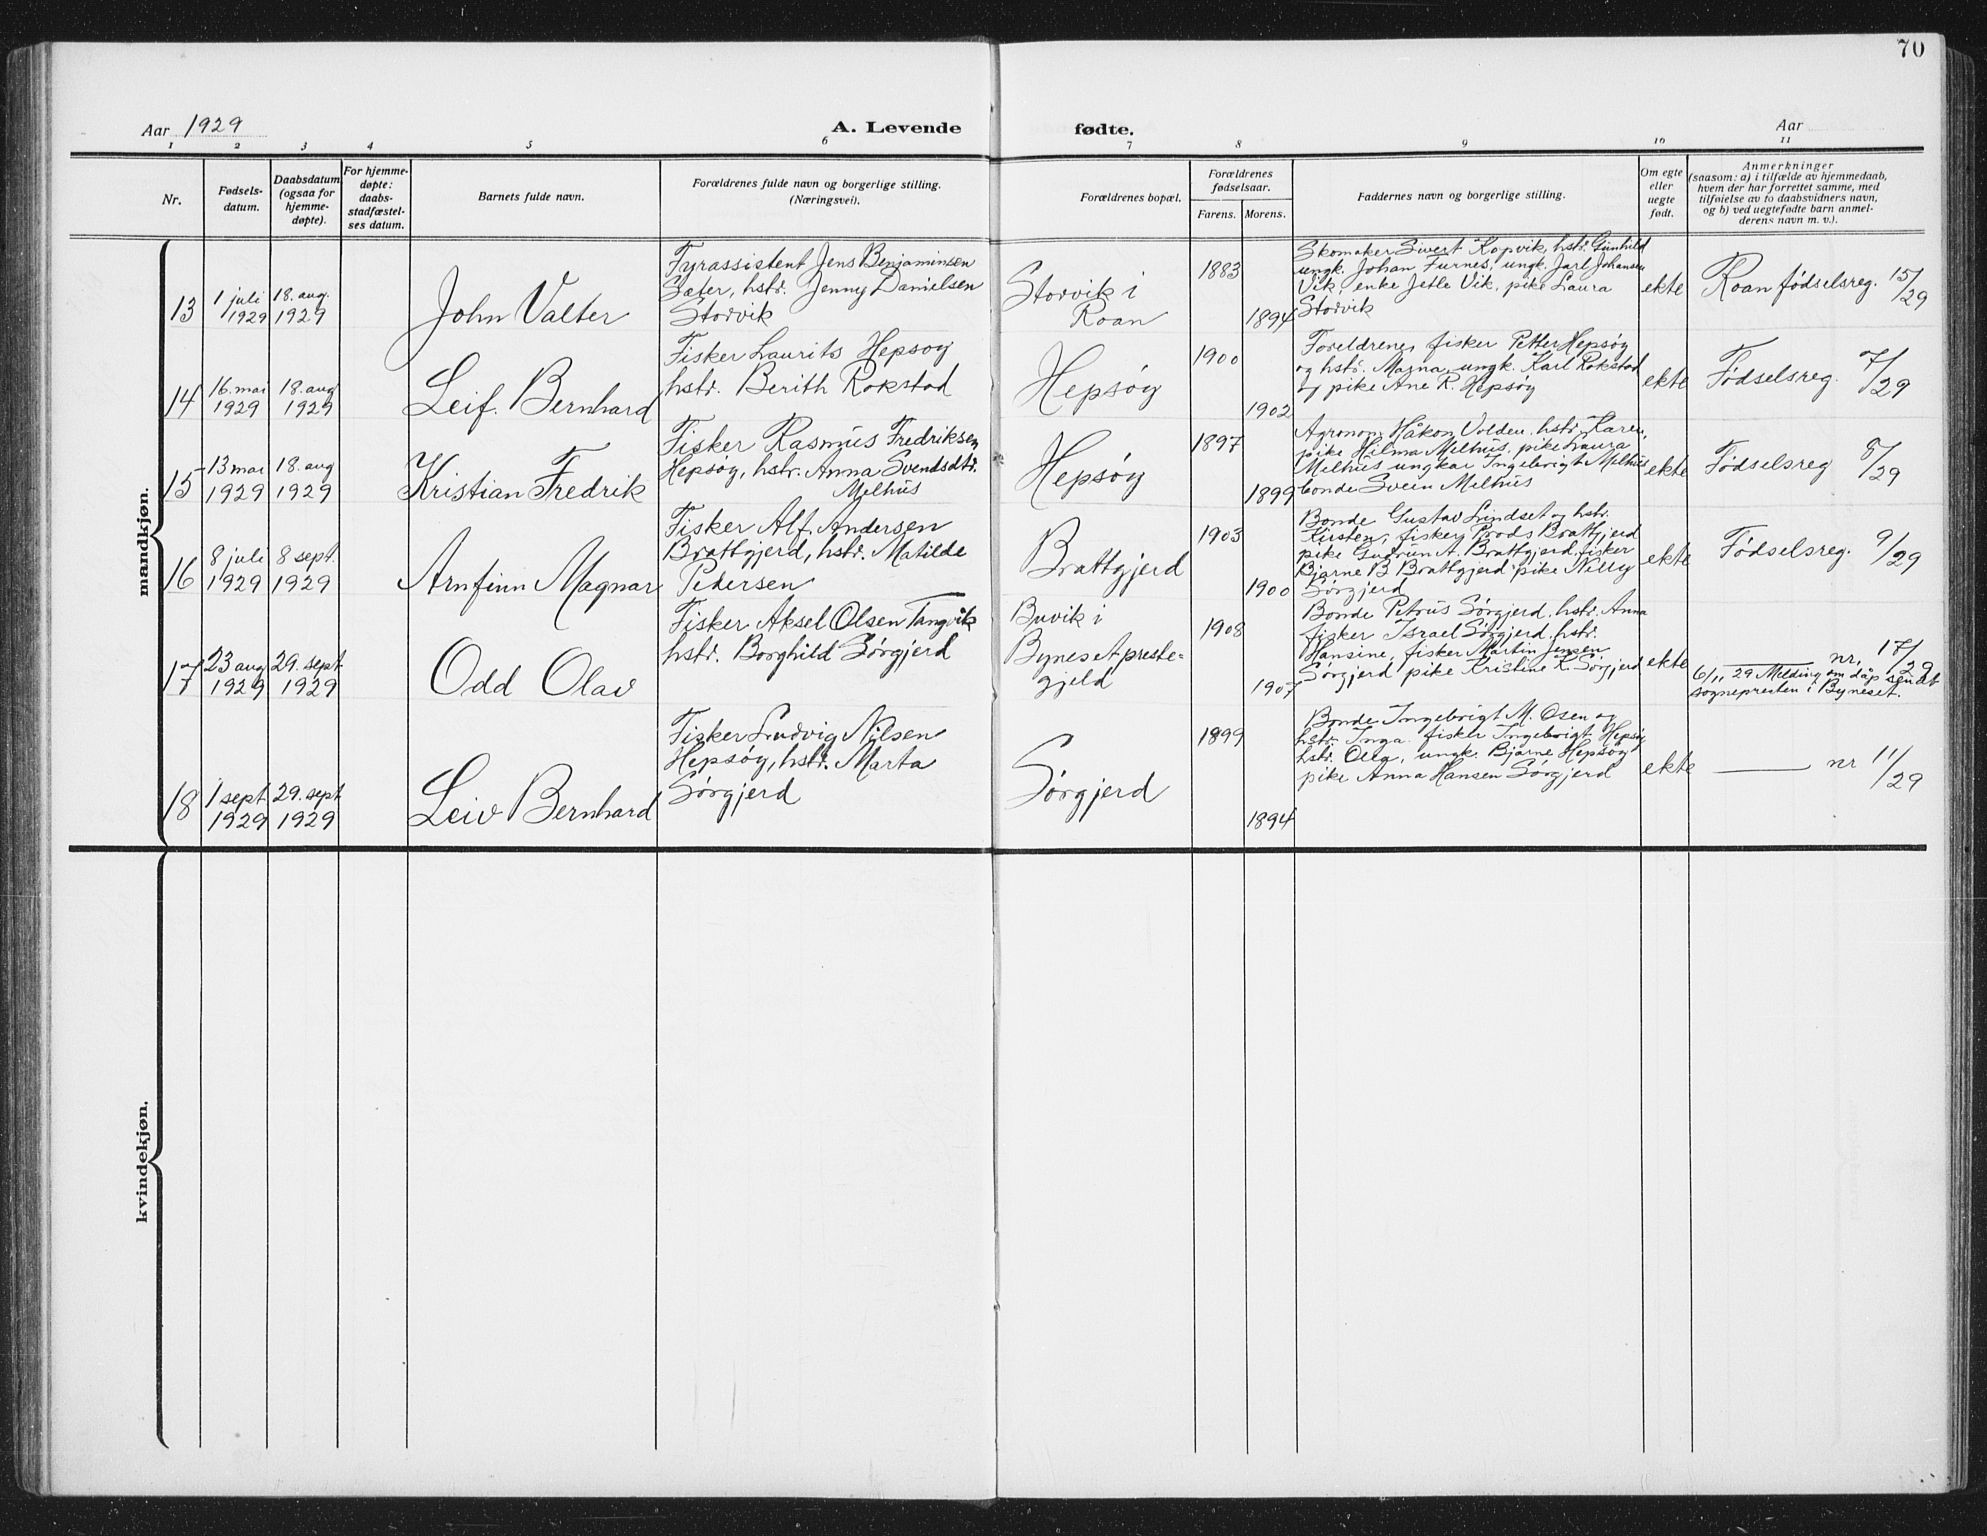 70
Aar 1929
A. Levende
fødte.
Aar
1 2 3 4 5 6 7 8 9 10 11
Nr.
Fødsels-
datum.
Daabsdatum
(ogsaa for
hjemme-
døpte).
For hjemme-
døpte:
daabs-
stadfæstel-
ses datum.
Barnets fulde navn.
Forældrenes fulde navn og borgerlige stilling.
(Næringsvei).
Forældrenes bopæl.
Forældrenes
fødselsaar.
Farens. Morens.
Faddernes navn og borgerlige stilling.
Om egte
eller
uegte
født.
Anmerkninger
(saasom: a) i tilfælde av hjemmedaab,
hvem der har forrettet samme, med
tilføielse av to daabsvidners navn,
og b) ved uegtefødte barn anmel-
derens navn m. v.).
mandkjøn.
13
1 juli
1929
18. aug.
1929
John Valter
Fyrassistent Jens Benjaminsen
Sæter, hstr. Jenny Danielsen
Storvik
Storvik i
Roan
1883
1894
Skomaker Sivert Kopvik, hstr. Gunhild
ungk. Johan Furnes, ungk. Jarl Johansen
Vik, enke Jetle Vik, pike Laura
Storvik
ekte
Roan fødselsreg. 15/29
14
16. mai
1929
18. aug
1929
Leif. Bernhard
Fisker Laurits Hepsøy
hstr. Berith Rokstad
Hepsøy
1900
1902
Foreldrene, fisker Petter Hepsøy
og hstr. Magna, ungk. Karl Rokstad
og pike Ane R. Hepsøy
ekte
Fødselsreg. 7/29
15
13 mai
1929
18. aug
1929
Kristian Fredrik
Fisker Rasmus Fredriksen
Hepsøy, hstr. Anna Svendsdtr.
Melhus
Hepsøy
1897
1899
Agronom Håkon Volden, hstr. Karen,
pike Hilma Melhus, pike Laura
Melhus ungkar Ingebrigt Melhus
bonde Svein Melhus
ekte
Fødselsreg 8/29
16
8 juli
1929
8 sept.
1929
Arnfinn Magnar
Fisker Alf. Andersen
Brattgjerd, hstr. Matilde
Pedersen
Brattgjerd
1903
1900
Bonde Gustav Lindset og hstr.
Kirsten, fisker Brattgjerd
pike Gudrun A. Brattgjerd, fisker
Bjarne B Brattgjerd pike Nelly
Sørgjerd
ekte
Fødselsreg. 9/29
17
23 aug
1929
29. sept
1929
Odd Olav
Fisker Aksel Olsen Tangvik
hstr. Borghild Sørgjerd
Buvik i
Byneset preste-
gjeld
1908
1907
Bonde Petrus Sørgjerd. hstr. Anna
fisker Israel Sørgjerd. hstr.
Hansine, fisker Martin Jensen
Sørgjerd pike Kristine K. Sørgjerd
ekte
nr. 17/29
6/11 29 Melding om dåp sendt
sognepresten i Byneset.
18
1 sept
1929
29. sept
1929
Leiv Bernhard
Fisker Ludvig Nilsen
Hepsøy, hstr. Marta
Sørgjerd
Sørgjerd
1899
1894
Bonde Ingebrigt M. Osen og
hstr. Inga. fisker Ingebrigt Hepsøy
hstr. Olga, ungk. Bjarne Hepsøy
pike Anna Hansen Sørgjerd
ekte
nr 11/29
kvindekjøn.